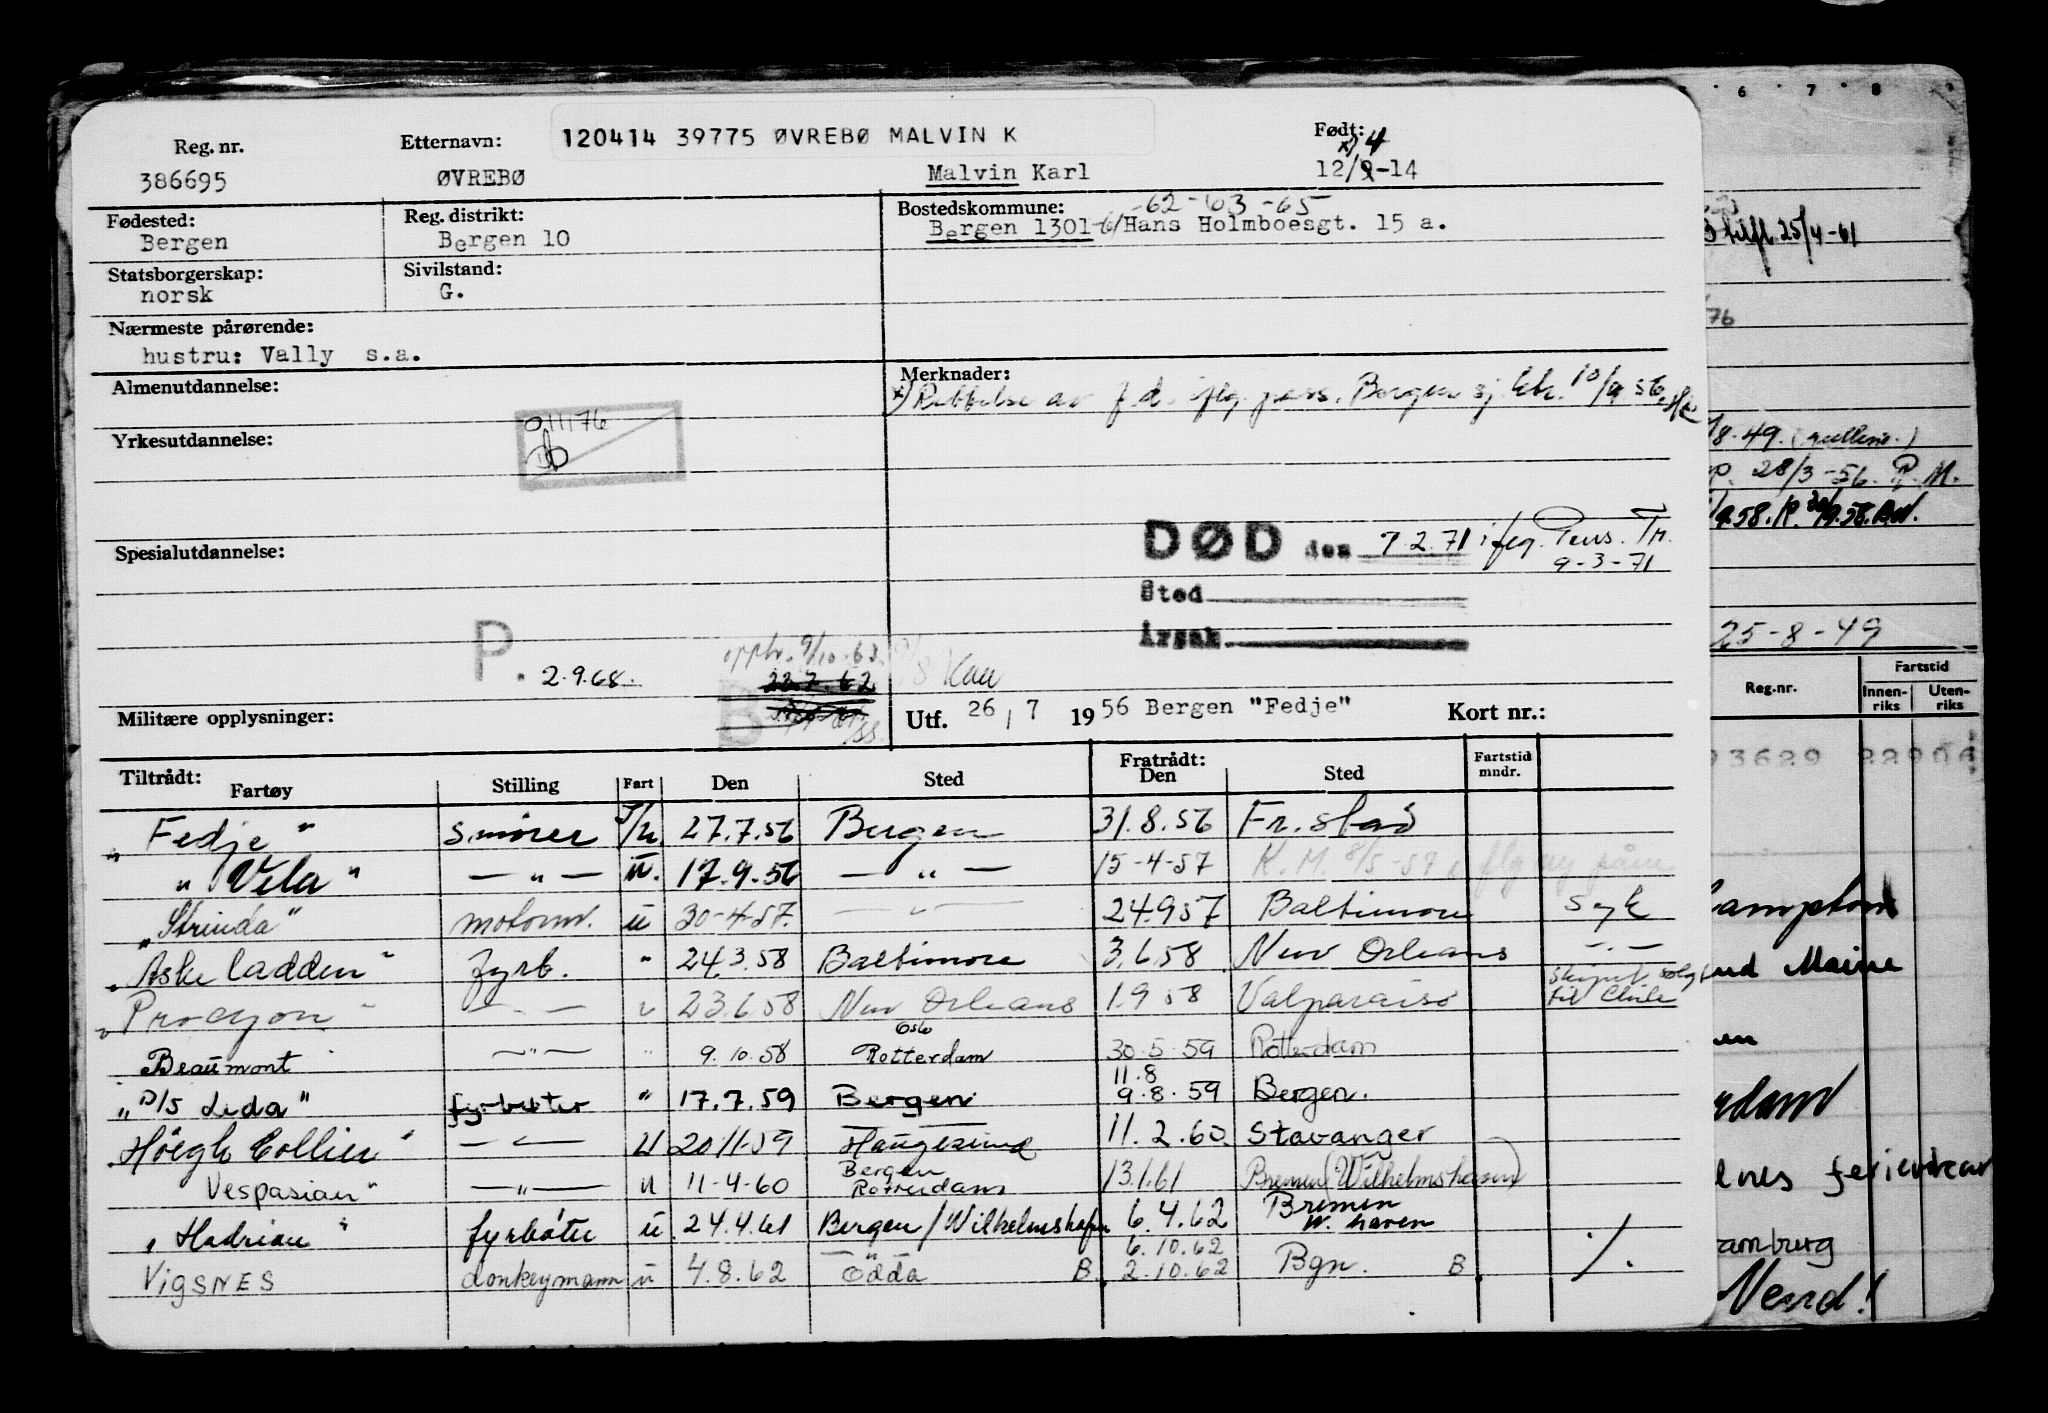 Reg. nr. Etternavn: 120414 39775 ØVREBØ MALVIN K Født:
x) 4
386695 ØVREBØ Malvin Karl 12/9-14
Fødested: Reg. distrikt: Bostedskommune: -62-63-65
Bergen Bergen 10 Bergen 1301-61/Hans Holmboesgt. 15 a.
Statsborgerskap: Sivilstand:
norsk G.
Nærmeste pårørende:
hustru: Vally s.a.
Almenutdannelse: Merknader:
x) Rettelse av f.d. iflg. pass. Bergen sj. ktr. 10/9 56
Yrkesutdannelse: 011176
DØD den 7.2.71 iflg. Pens. Tr.
9-3-71
Spesialutdannelse:
Sted
Årsak
P. 2.9.68. opphr. 9/10.63
22.7.62
Militære opplysninger: B Utf. 26/7 1956 Bergen "Fedje" Kort nr.:
Tiltrådt: Fratrådt:
Fartøy Stilling Fart Den Sted Den Sted Fartstid mndr.
"Fedje" s.mører 27.7.56 Bergen 31.8.56 Fr.stad
"Vela" — " — u. 17.9.56 — " — 15-4-57 K.M. 8/5-57
"Strinda" motorm. u 30-4-57. — " — 24957 Baltimore syk
"Askeladden" fyrb. " 24.3.58 Baltimore 3.6.58 New Orleans — . —
"Procyon" — " — " 23.6.58 New Orleans 1.9 58 Valparaiso skipet solgt til Chile
Oslo
Beaumont — " — " 9.10.58 Rotterdam 30.5.59 Rotterdam
11.8
"D/S Leda" fyrbøter " 17.7.59 Bergen 9.8.59 Bergen.
"Höegh Collier" — " — U 20 11-59 Haugesund 11.2.60 Stavanger
Bergen
Vespasian" — " — u 11-4-60 Rotterdam 13.1.61 Bremen (Wilhelmshaven)
"Hadrian" fyrbøter u 24.4.61 Bergen/Wilhelmshafn 6.4.62 Bremen W. haven
6.10.62
VIGSNES donkeymann u 4.8.62 Odda B. 2.10.62 Bgn. B. ./.
6 7 8
tilfl. 25/4-61
76
8.49.
28/3-56. P. M.
25-8-49
Reg.nr. Fartstid
Innenriks Utenriks
93629 22906
Maine
en
rdam
feriereiser
amburg
Vend!